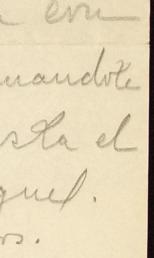 con
mandote
sta el
quel.
os.